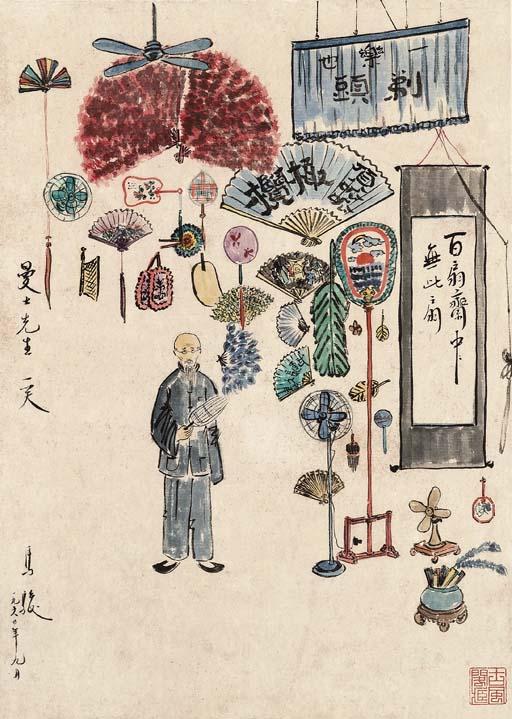 一樂也
剃頭
百扇齋中
無此扇
曼士先生 一笑
馬駿
一九六〇年九月